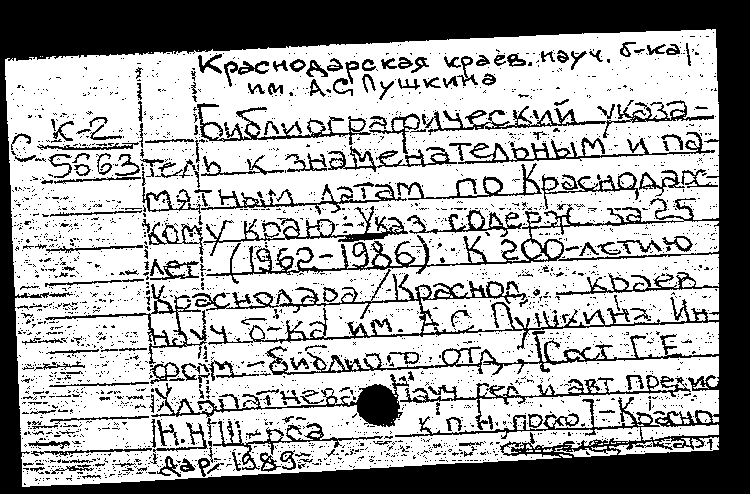 Краснодарская краев. науч. б-ка
им. А.С. Пушкина
К-2 Библиографический указа-
С 5663 тель к знаменательным и па-
мятным датам по Краснодарс-
кому краю: Указ. содерж. за 25
лет (1962-1986): К 200-летию
Краснодара / Краснод. краев.
науч. б-ка им. А.С. Пушкина. Ин-
форм.-библиогр. отд.; [Сост. Г.Е.
Науч. ред. и авт. предис.
к.п.н., проф.] - Красно-
дар, 1989.